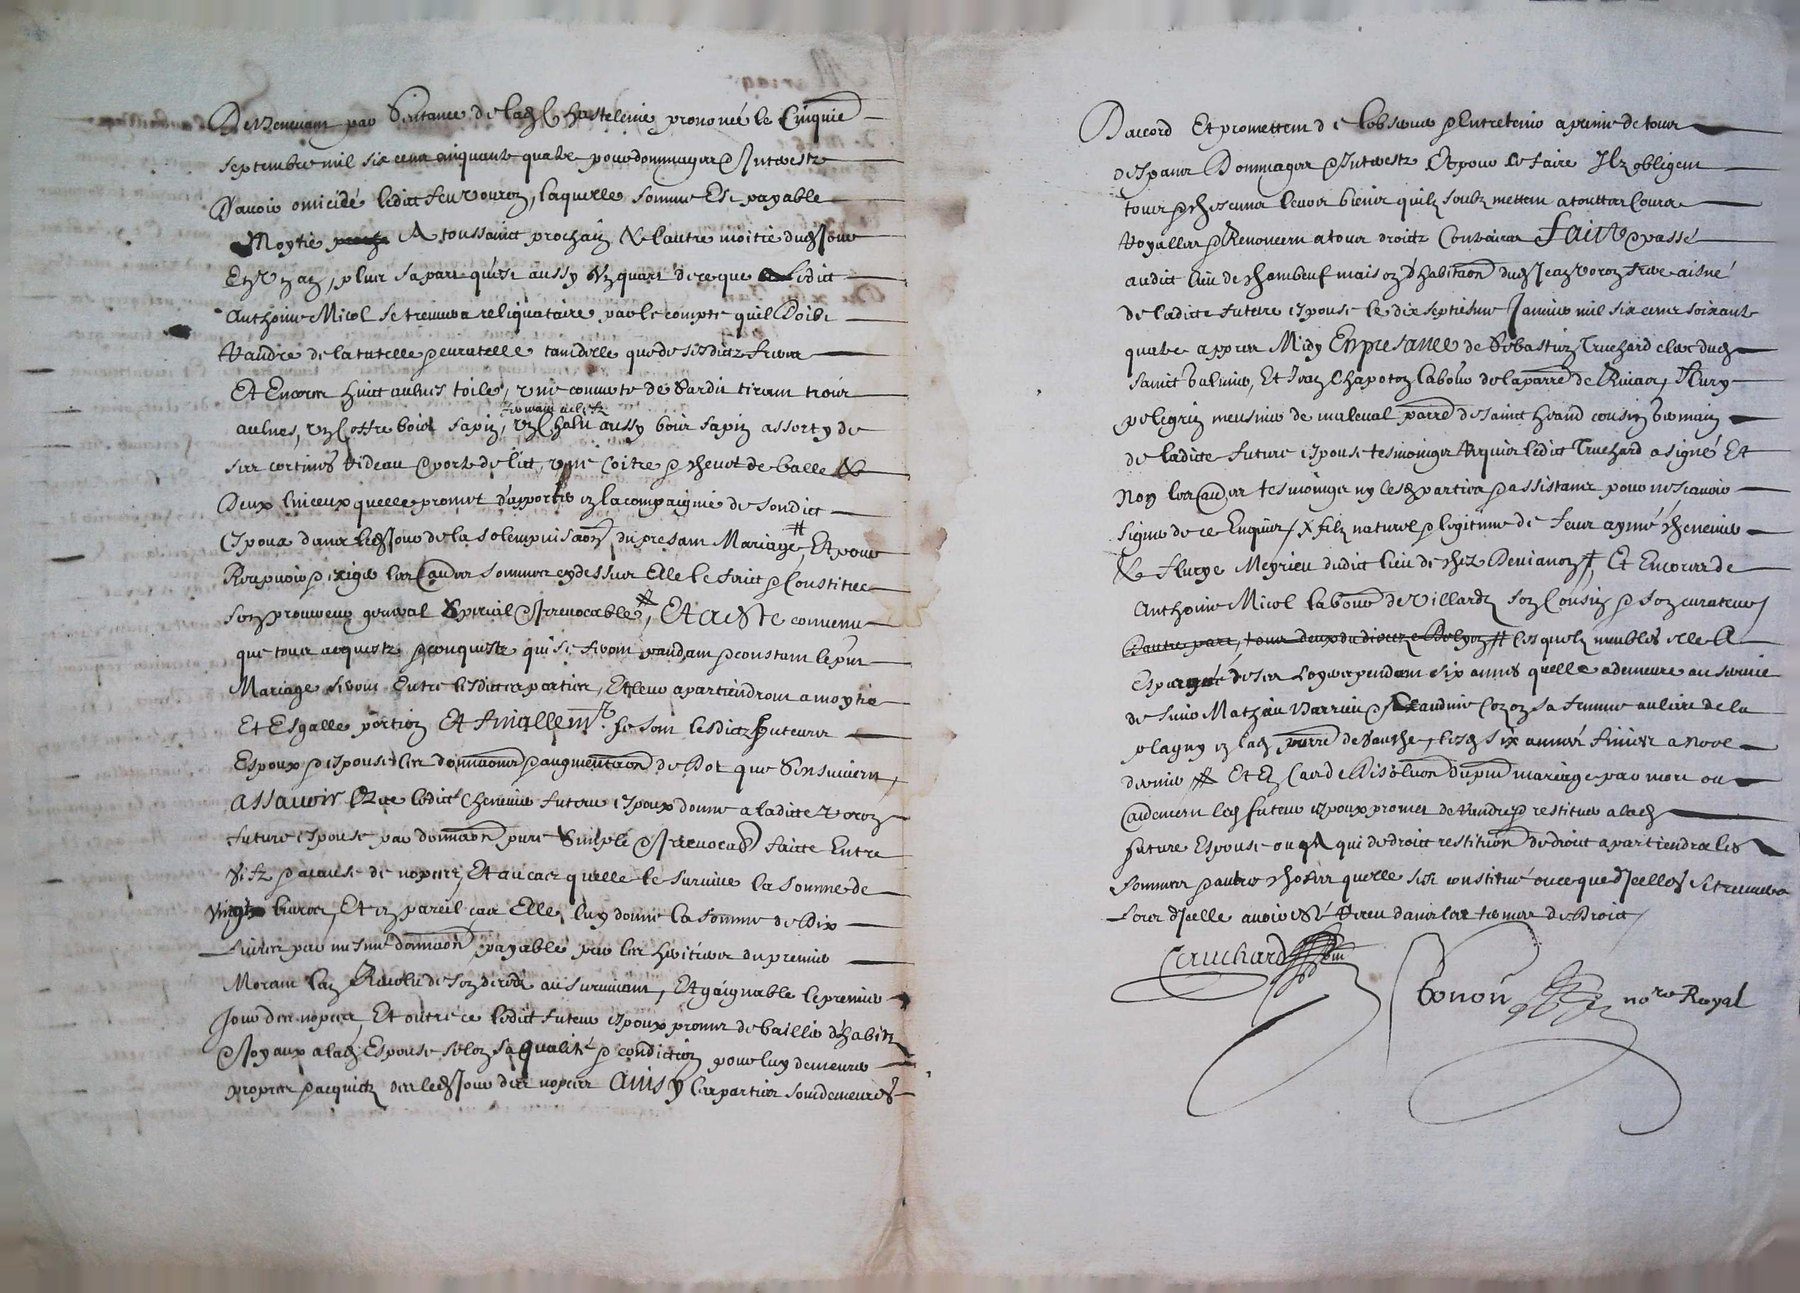 par Sentance de lad Chastelenie prononcé le Cinquie
septembre mil six cens cinquante quatre pour dommages & Interestz
Davoir omicidé ledict feu Voron, laquelle somme Est payable
Moytié A toussainct prochain & lautre moitié dud Jour
En Un an, plus sa part qu'est aussy Un quart de ce que ledict
Anthoine Micol se treuvera reliquataire par le compte quil Doibt
Randre de la tutelle & curatelle tant delle que de sesdictz freres
Et Encores huict aulnes toile, une couverte de tirant trois
aulnes, un Coffre bois sapin, un Chalit aussy bois sapin assorty de
ses cortines rideau & porte de lict, une Coitre & chevet de balle &
Deux linceux quelle promet d'apporter en la compaignie de sondict
Espoux dans led Jour de la solempnisaon du presant Mariage, Et pour
& exiger les sommes cydessus Elle le faict & Constitue
son procureur general special & Irrevocable, Et a Esté convenu
que tous acquestz & conquestz qui se feront pandant & constant le pnt
Mariage seront Entre lesdictes parties, Et leur apartiendront a moytié
Et Esgalle portion Et finallemt se sont lesdictz futeurs
Espoux & espouse les donnaons & augmentaon de Dot que Sensuivent
assavoir Que ledict Chenevier futeur espoux donne a ladicte Voron
future espouse par donnaon pure Simple & Irrevocab faicte Entre
vifz & a cause de nopces, Et au cas quelle le survive la somme de
vingt livres, Et en pareil cas Elle luy donne la somme de Dix
Livres par mesme donnaon payable par les heritiers du premier
Morant lan Revolu de son deces au survivant, Et gaignable le premier
Jour des nopces, Et outre ce ledict futeur espoux promet de bailler d'habitz
& Joyaux a lad Espouse selon sa qualité & condiction pour luy demeurer
propres & acquictz des led Jour des nopces Ainsy les parties sont demeurés
Daccord Et promettent de lobserver & Entretenir a peine de tous
despans Dommages & Interestz Et pour ce faire Ilz obligent
tous & chescuns leurs biens quilz soubzmettent a touttes Cours
Royalles & Renoncent a tous droictz Contraires Faict & passé
audict lieu de Chambeuf maison d'habitaon dud Jean Voron frere aisné
de ladicte future espouse le dix septiesme Janvier mil six cens soixante
quatre appres Midy En presance de Sebastien Truchard clerc dud
Sainct Galmier, Et Jean Chapoton labour de la parre de Rivas, Flury
pelegrin meusnier de maleval parre de sainct heand cousin germain
de ladicte future espouse tesmoings Requis ledict Truchard a signé Et
Non les autres tesmoings ny lesd parties & assistans pour ne scavoir
signer de ce Enquis / X filz naturel & legitime de feus aymé Chenevier
& Flurye Meyrieu dudict lieu de chez Benianon #, Et Encores de
Anthoine Micol labour de Villardz son Cousin & son curateur /
D'autre part, tous deux du diocese de Lyon # lesquelz meubles elle A
Espargné de ses Loyers pendant six annes quelle a demeuré au service
de sieur Mathieu Barrieu & Claudine Cozon sa femme au lieu de la
plagny en lad parre de, lesd six années finies a noel
dernier # Et En Cas de Disoluon du pnt mariage par mort ou
aultrement led futeur espoux promet de Randre & restituer a lad
future Espouse ou A qui de droict restitution de droict apartiendra les
Sommes & autres choses quelle sest constitué ou ce que d'Icelles se treuvera
Lors d'Icelle avoir esté Receu dans les termes de Droict /
Truchard
Bonon
nore Royal